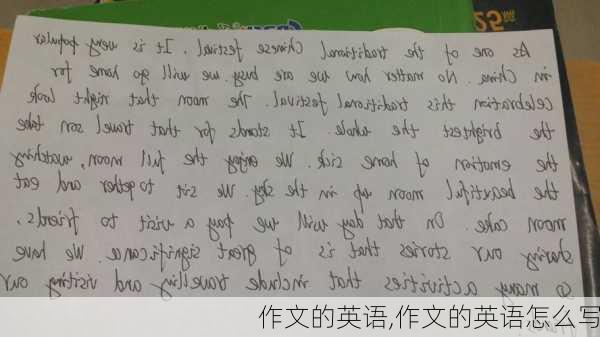 25
As one of the traditional Chinese festival. It is very popular
in China. No matter how we are busy we will go home for
celebration this traditional festival. The moon that night look
the brightest the whole. It stands for that travel son take
the emotion of home sick. We enjoy the full moon, watching
the beautiful moon up in the sky. We sit together and eat
moon cake. On that day will we pay a visit to friends,
sharing our stories that is of great significance. We have
so many activities that include travelling and visiting our
作文的英语,作文的英语怎么写